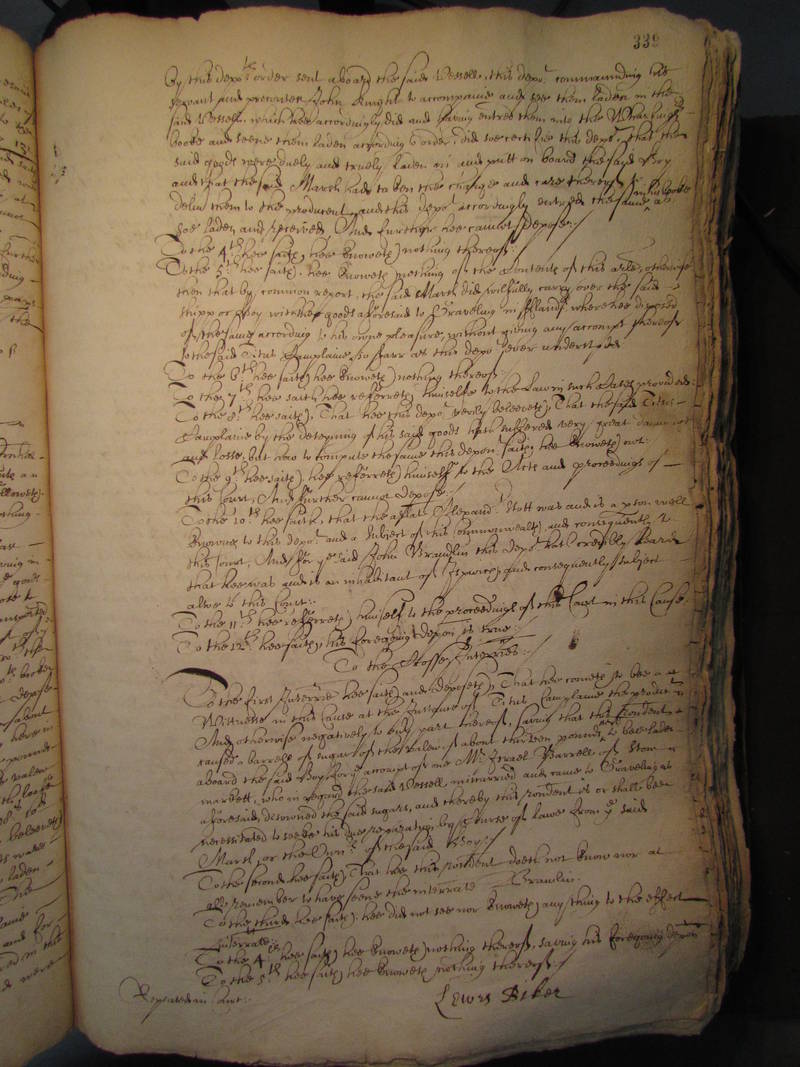 339
by this depo:ts order sent aboard the said Vessell, this depo:t commaunding his
servant and prentice John Knight to accompanie and see them laden in the
said Vessell. which hee accordingly did and having entred them into the Wharfingers
booke and seene them laden according to order, did soe certifie this depo:t that the
said goods were duely and truely laden in and putt on board the sayd Hoy
and that the said March had taken the charge and care thereof to
deliver them to the producent, and this depo:t accordingly entred the same in his booke as
soe laden and received And further hee cannot depose:/
To the 4:th hee saith hee knoweth nothing thereof:
To the 5:th hee saith hee knoweth nothing of the Contents of this arle, otherwise
then that by common report, the said March did wilfully carry over the said
shipp or Hoy with the goods aforesaid to Graveling in Flandrs where hee disposed
of the same according to his owne pleasure, without giving any accompt thereof
to the said Titus Camplaine soe farr as this depo:t ever understood
To the 6:th hee saith hee knoweth nothing thereof:
To the 7:th hee saith hee referreth himselfe to the Law in such Cases provided:
To the 8:th hee saith, That hee this depo:t verily beleeveth, That the said Titus
Camplaine by the detayning of his said goods hath suffered very great dammage
and losse, but how to compute the same this depon:t saith hee knoweth not:
To the 9:th hee saith, hee referreth himselfe to the Acts and proceedings of
this Court, And further cannot depose:/
To the 10:th hee saith, that the arlate Alexand:r Nott was and is a pson well
knowne to this depo:t and a subiect of this Commonwealth, and consequently to
this Court, And for y:e said John Bramlin this depo:t hath credibly heard
that hee was and is an inhabitant of Ipswich, and consequently subiect
alsoe to this Court:
To the 11:th hee referreth himselfe to the proceedings of this Court in this Cause
To the 12:th hee saith, his foregoing depon is true:
To the Crosse Interries:/
To the first Interrie hee saith and deposeth, That hee cometh to bee a
Wittnesse in this Cause at the Instance of Titus Camplaine the producent
And otherwise negatively to every part thereof, saving that this rondent
caused a barrell of sugar of the value of about thirteen pounds to bee laden
aboard the said Hoy for y:e accompt of one Mr Israel Barrell of Stow
markett, who in regard the said Vessell miscarried and came to Graveling as
aforesaid, disowned the said sugars, and thereby this rondent is or shalbe
necessitated to seeke his due reparation by Course of lawe from y:e said
March or the Own:rs of the said Hoy:/
To the second hee saith, That hee this rondent doeth not know nor at
all remember to have seene the interrate Bramlin.
To the third hee saith, hee did not see nor knoweth any thing to the effect
Interrate:
To the 4:th hee saith, hee knoweth nothing thereof, saving his foregoing depon
To the 5:th hee saith, hee knoweth nothing thereof:/
Repeated in Court:
Lewis Biker